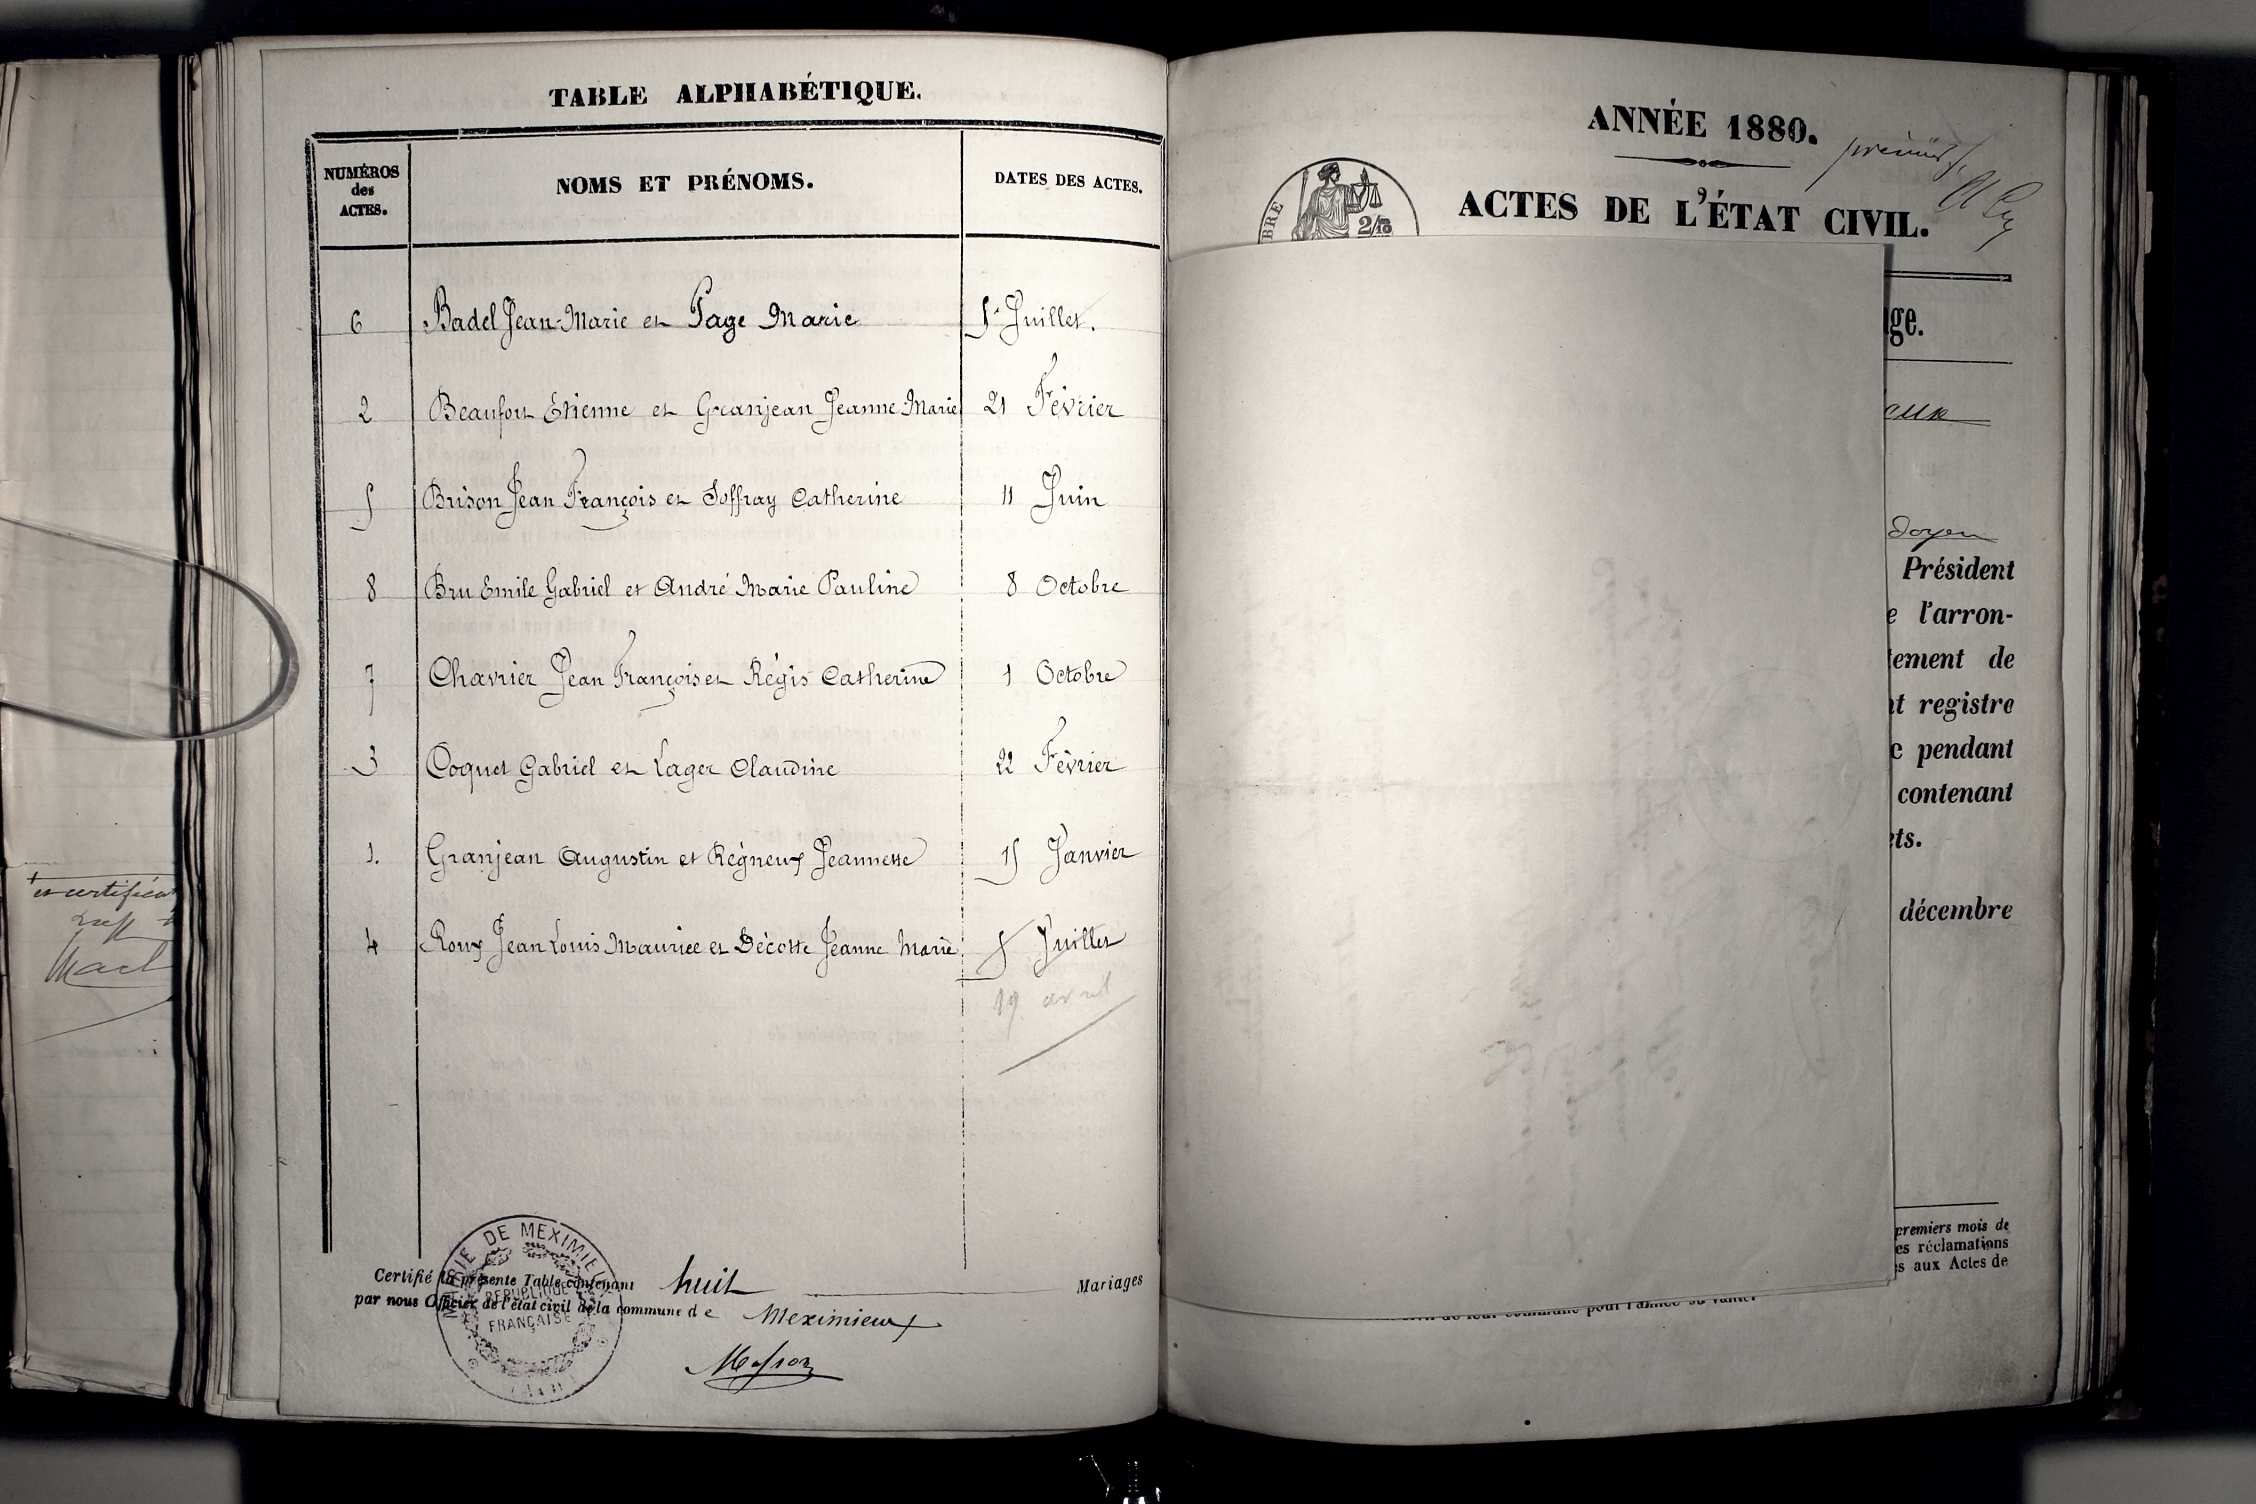 et certificat
TABLE ALPHABÉTIQUE.
NUMÉROS
des
ACTES.
NOMS ET PRÉNOMS.
DATES DES ACTES.
6 Badel Jean-Marie et Page Marie 5 Juillet.
2 Beaufort Etienne et Granjean Jeanne Marie 21 Février
5 Brison Jean François et Joffray Catherine 11 Juin
8 Bru Emile Gabriel et André Marie Pauline 8 Octobre
7 Chavrier Jean François et Régis Catherine 1 Octobre
3 Coquet Gabriel et Lager Claudine 22 Février
1. Granjean Augustin et Régneux Jeannette 15 Janvier
4 Roux Jean Louis Maurice et Décotte Jeanne Marie 5 Juillet
19 avril
Certifié la présente Table contenant huit Mariages
par nous Officier de l'état civil de la commune de Meximieux
Masson
MAIRIE DE MEXIMIEUX
RÉPUBLIQUE
FRANÇAISE
(AIN)
ANNÉE 1880.
ACTES DE L'ÉTAT CIVIL.
BRE
2/10
ge.
eux
Doyen
Président
e l'arron-
tement de
nt registre
c pendant
contenant
ets.
décembre
premiers mois de
es réclamations
s aux Actes de
de leur commune pour l'année suivante.